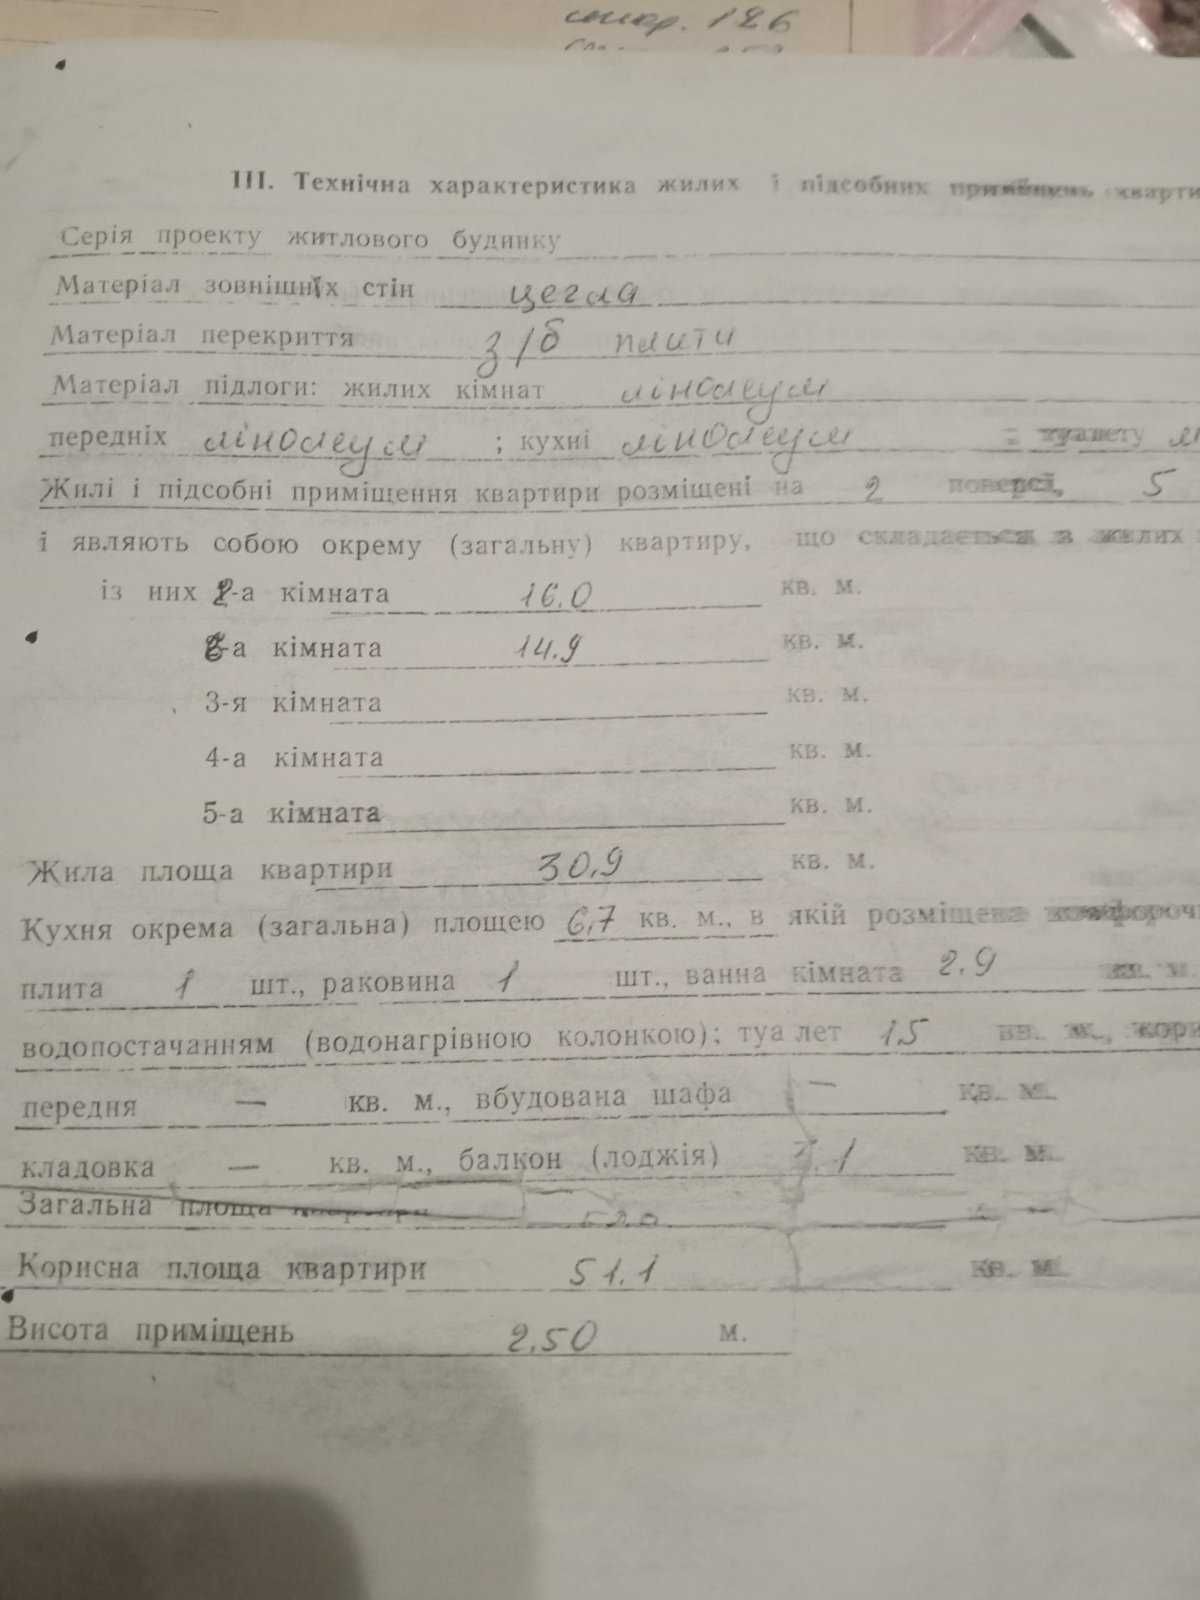 126
III. Технічна характеристика жилих і підсобних приміщень кварти
Серія проекту житлового будинку
Матеріал зовнішніх стін цегла
Матеріал перекриття з/б плити
Матеріал підлоги: жилих кімнат лінолеум
передніх лінолеум ; кухні лінолеум ; туалету
Жилі і підсобні приміщення квартири розміщені на 2 поверсі, 5
і являють собою окрему (загальну) квартиру, що складається з жилих
із них -а кімната 16.0 кв. м.
-а кімната 14.9 кв. м.
3-я кімната кв. м.
4-а кімната кв. м.
5-а кімната кв. м.
Жила площа квартири 30,9 кв. м.
Кухня окрема (загальна) площею 6,7 кв. м., в якій розміщена
плита 1 шт., раковина 1 шт., ванна кімната 2.9 кв. м.
водопостачанням (водонагрівною колонкою); туалет 1.5 кв. м., кори
передня — кв. м., вбудована шафа — кв. м.
кладовка — кв. м., балкон (лоджія) кв. м.
Загальна площа
Корисна площа квартири 51.1 кв. м.
Висота приміщень 2.50 м.